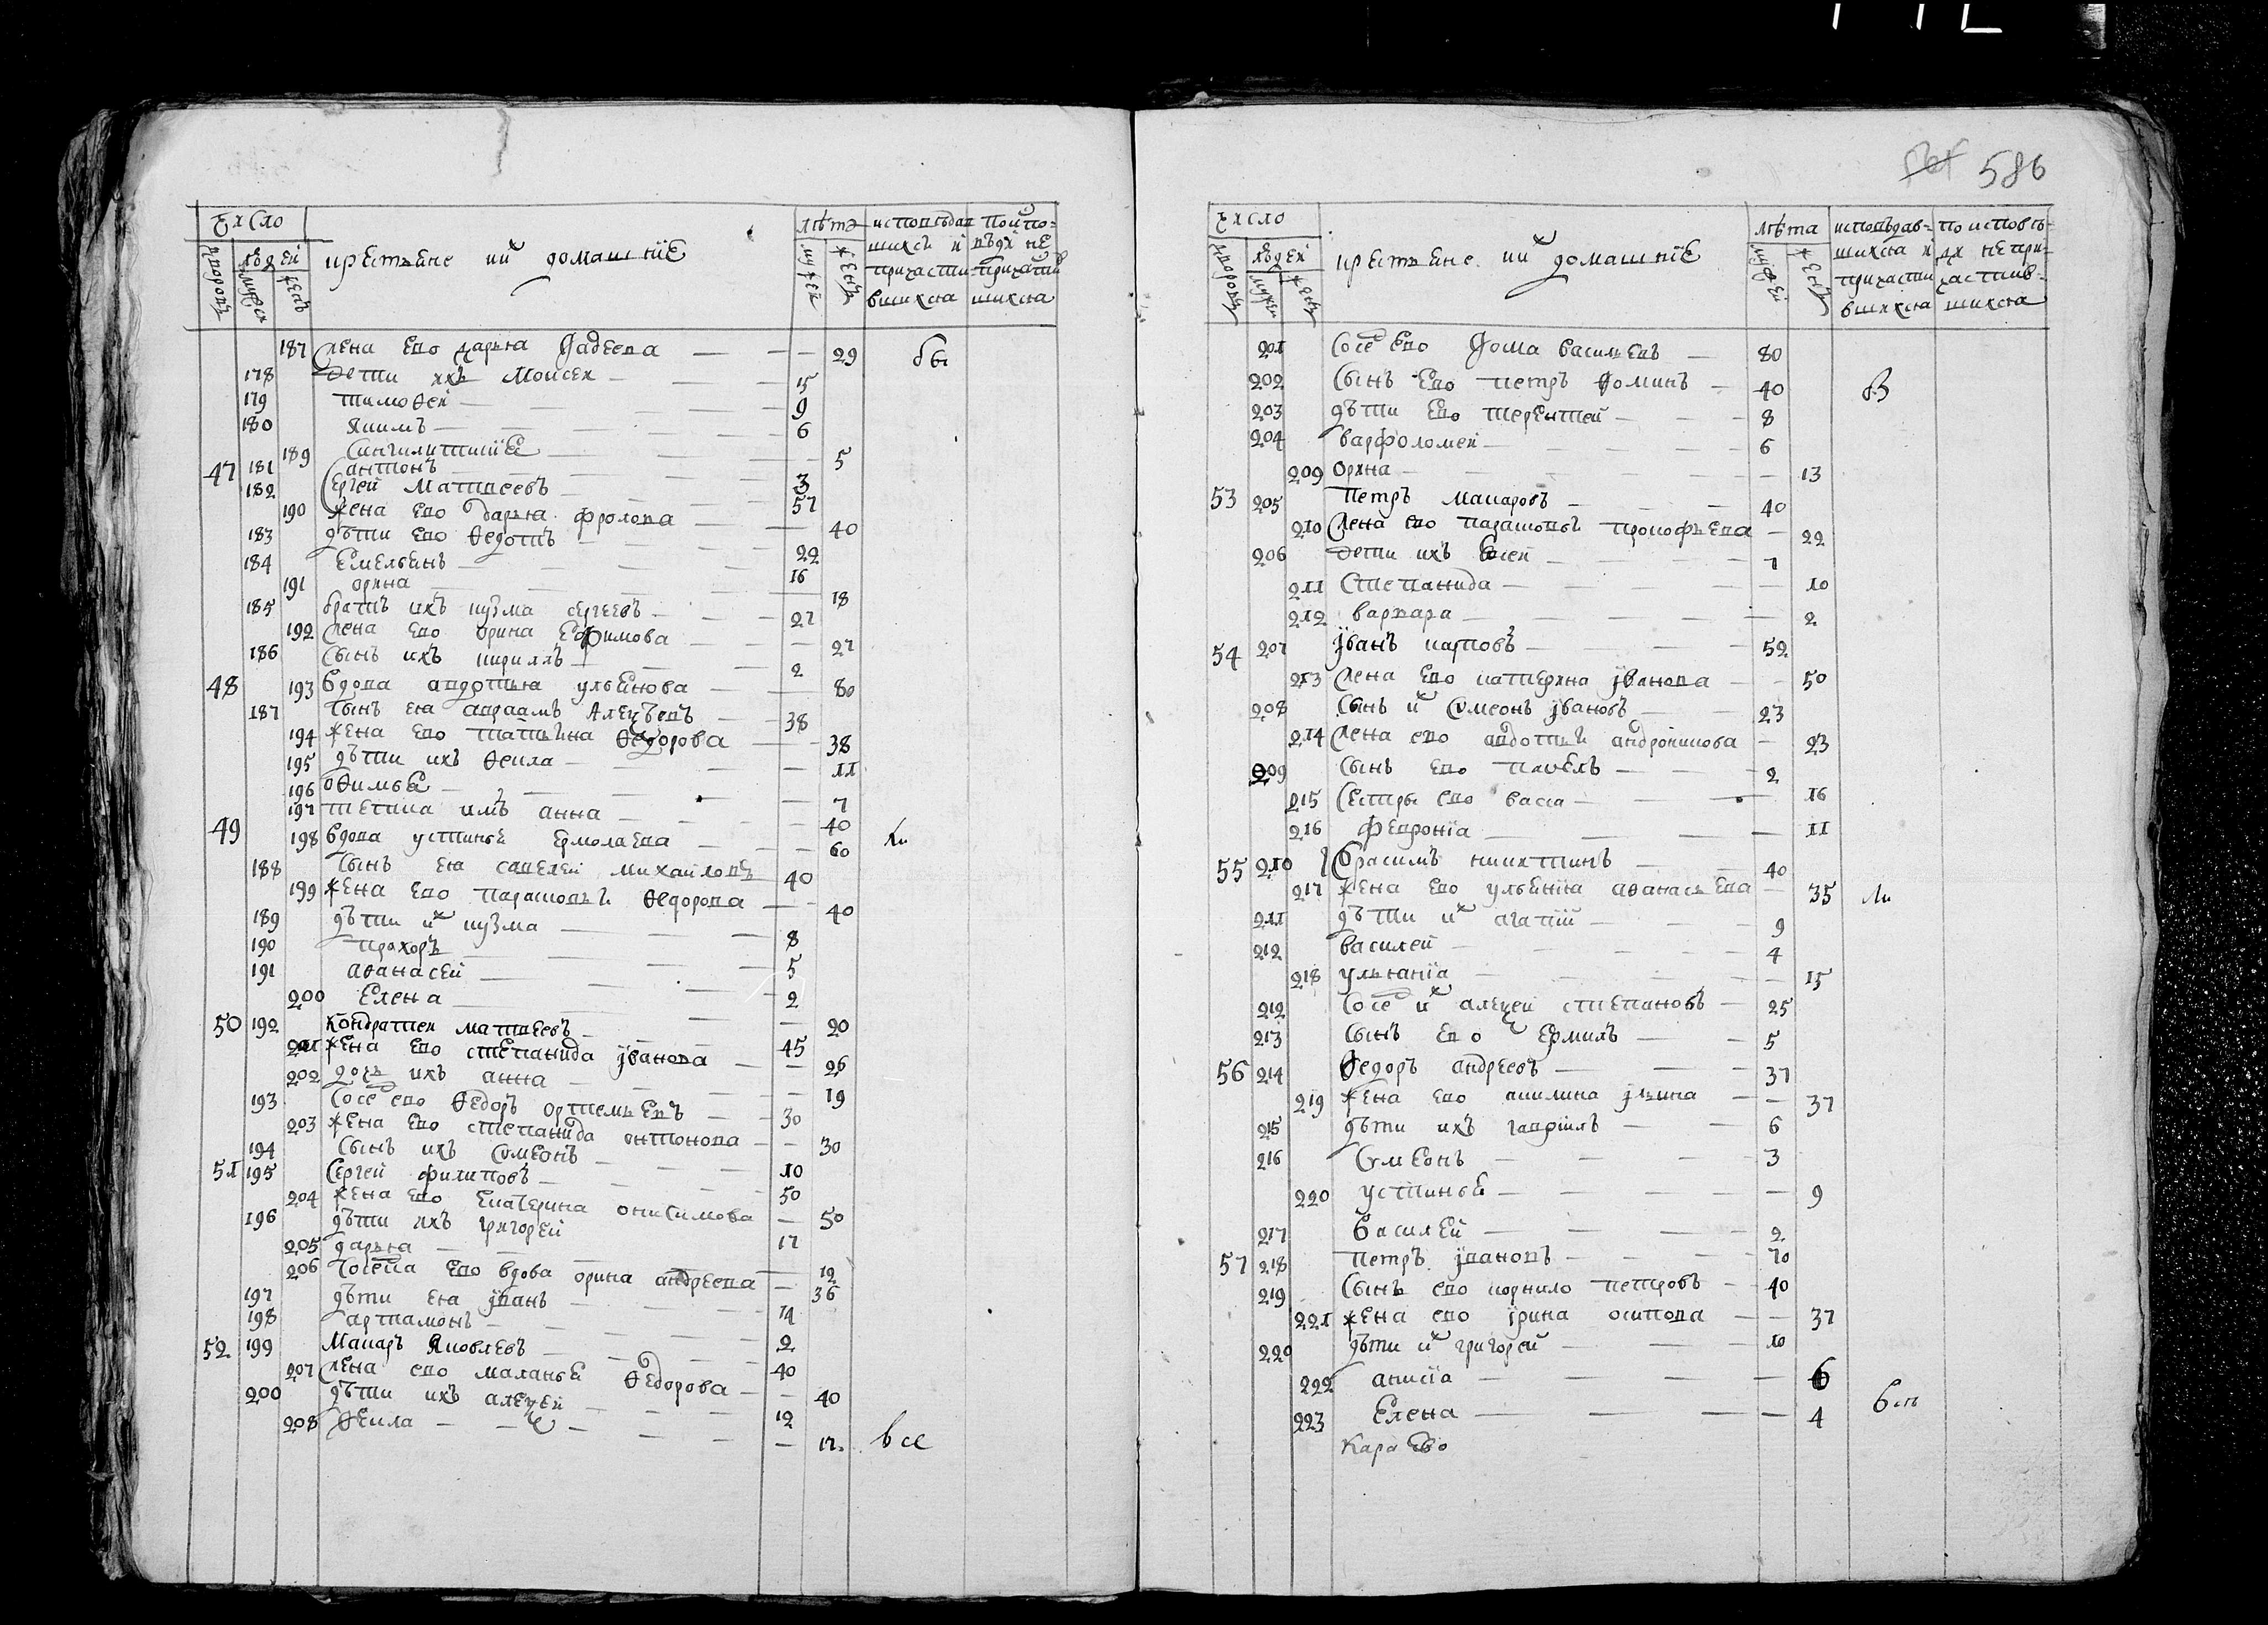 число
дворовъ
людей
мужеск
женъ
крестьяне и ихъ домашніе
лѣта
мужей
женъ
исповѣдавшихся и причастившихся
по исповѣди не причастившихся
187 жена ево дарья Фадеева — 29 бы
178 дети ихъ Моисей — 15
179 тимофей — 9
180 якимъ — 6
189 — 5
47 181 антонъ — 3
182 Сергей Матвеевъ — 57
190 жена ево дарья фролова — 40
183 дѣти ево Федотъ — 22
184 Емельянъ — 16
191 орина — 18
185 братъ ихъ кузма сергеевъ — 27
192 жена ево орина Ефимова — 27
186 сынъ ихъ кириллъ — 2
48 193 вдова авдотья ульянова — 80
187 сынъ ея авраамъ Алексѣевъ — 38
194 жена ево татьяна Федорова — 38
195 дѣти ихъ Фекла — 11
196 Офимья — 7
197 тетка имъ анна — 40
49 198 вдова устинья Ермолаева — 60
188 сынъ ея савелей михайловъ — 40
199 жена ево парасковья Федорова — 40
189 дѣти их кузма — 8
190 прохоръ — 5
191 афанасей — 2
200 Елена — 20
50 192 Кондратей матвеевъ — 45
201 жена ево степанида Іванова — 26
202 дочь ихъ анна — 19
193 сосед ево Федоръ ортемьевъ — 30
203 жена ево степанида онтонова — 30
194 сынъ ихъ Симеонъ — 10
51 195 Сергей филиповъ — 50
204 жена ево Екатерина онисимова — 50
196 дѣти ихъ григорей — 17
205 дарья — 12
206 соседка ево вдова орина андреева — 36
197 дѣти ея Іванъ — 14
198 артамонъ — 2
52 199 Макаръ Яковлевъ — 40
207 жена ево маланья Федорова — 40
200 дѣти ихъ алексей — 12
208 Фекла — 17 все
586
число
дворовъ
людей
мужеск
женъ
крестьяне и ихъ домашніе
лѣта
мужей
женъ
исповѣдавшихся и причастившихся
по исповѣди не причастившихся
201 Сосед ево Фома васильевъ — 80
202 Сынъ ево петръ Фоминъ — 40
203 дѣти ево терентей — 8
204 варфоломей — 6
209 Орина — 13
53 205 Петръ макаровъ — 40
210 жена ево парасковья прокофьева — 22
206 дети ихъ — 7
211 Степанида — 10
212 варвара — 2
54 207 Іванъ карповъ — 52
213 жена ево катерина Іванова — 50
208 Сынъ их Симеонъ Івановъ — 23
214 жена ево авдотья андроникова — 23
209 сынъ ево павелъ — 2
215 Сестры ево васса — 16
216 феврониа — 11
55 210 Герасимъ никитинъ — 40
217 жена ево ульяниа афанасьева — 35
211 дѣти их агапій — 9
212 василей — 4
218 ульяніа — 15
212 сосед их алексей степановъ — 25
213 сынъ ево Ермилъ — 5
56 214 Федоръ андреевъ — 37
219 жена ево акилина Ільина — 37
215 дѣти ихъ гавріилъ — 6
216 Сумеонъ — 3
220 устинья — 9
217 василей — 2
57 218 Петръ Івановъ — 70
219 Сынъ ево корнило петровъ — 40
221 жена ево Ірина осипова — 37
220 дѣти их григорей — 10
222 анисіа — 6
223 Елена — 4
Караево